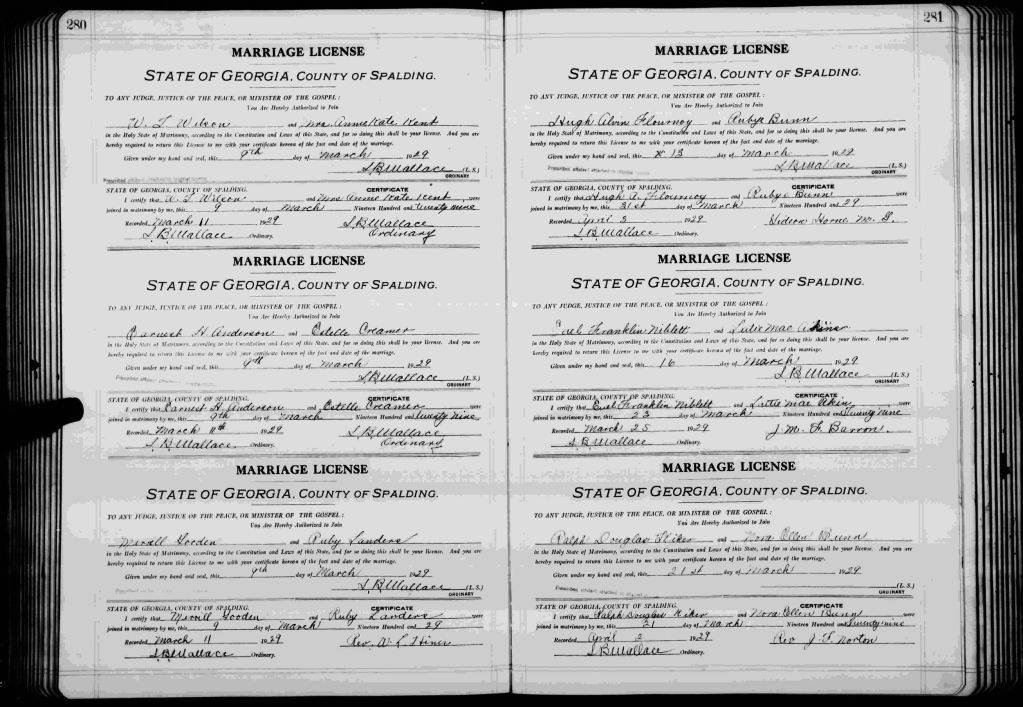 280
MARRIAGE LICENSE
STATE OF GEORGIA, COUNTY OF SPALDING.
TO ANY JUDGE, JUSTICE OF THE PEACE, OR MINISTER OF THE GOSPEL :
You Are Hereby Authorized to Join
W. T. Wilson and Mrs. Annie Kate Kent
in the Holy State of Matrimony, according to the Constitution and Laws of this State, and for so doing this shall be your license. And you are
hereby required to return this License to me with your certificate hereon of the fact and date of the marriage.
Given under my hand and seal, this 9th day of March 1929
S. B. Wallace (L. S.)
ORDINARY
STATE OF GEORGIA, COUNTY OF SPALDING. CERTIFICATE
I certify that W. T. Wilson and Mrs Annie Kate Kent were
joined in matrimony by me, this 9 day of March Nineteen Hundred and Twenty nine
Recorded March 11 1929 S. B. Wallace
S. B. Wallace Ordinary. Ordinary
MARRIAGE LICENSE
STATE OF GEORGIA, COUNTY OF SPALDING.
TO ANY JUDGE, JUSTICE OF THE PEACE, OR MINISTER OF THE GOSPEL :
You Are Hereby Authorized to Join
Earnest H. Anderson and Estelle Creamer
in the Holy State of Matrimony, according to the Constitution and Laws of this State, and for so doing this shall be your license. And you are
hereby required to return this License to me with your certificate hereon of the fact and date of the marriage.
Given under my hand and seal, this 9th day of March 1929
S. B. Wallace (L. S.)
ORDINARY
STATE OF GEORGIA, COUNTY OF SPALDING. CERTIFICATE
I certify that Earnest H. Anderson and Estelle Creamer were
joined in matrimony by me, this 9th day of March Nineteen Hundred and Twenty nine
Recorded March 11th 1929 S. B. Wallace
S. B. Wallace Ordinary. Ordinary
MARRIAGE LICENSE
STATE OF GEORGIA, COUNTY OF SPALDING.
TO ANY JUDGE, JUSTICE OF THE PEACE, OR MINISTER OF THE GOSPEL :
You Are Hereby Authorized to Join
Merrill Gooden and Ruby Landers
in the Holy State of Matrimony, according to the Constitution and Laws of this State, and for so doing this shall be your license. And you are
hereby required to return this License to me with your certificate hereon of the fact and date of the marriage.
Given under my hand and seal, this 9th day of March 1929
S. B. Wallace (L. S.)
ORDINARY
STATE OF GEORGIA, COUNTY OF SPALDING. CERTIFICATE
I certify that Merrill Gooden and Ruby Landers were
joined in matrimony by me, this 9 day of March Nineteen Hundred and 29
Recorded March 11 1929 Rev. W. L.
S. B. Wallace Ordinary.
281
MARRIAGE LICENSE
STATE OF GEORGIA, COUNTY OF SPALDING.
TO ANY JUDGE, JUSTICE OF THE PEACE, OR MINISTER OF THE GOSPEL :
You Are Hereby Authorized to Join
Hugh Alvin Flournoy and Rubye Bunn
in the Holy State of Matrimony, according to the Constitution and Laws of this State, and for so doing this shall be your license. And you are
hereby required to return this License to me with your certificate hereon of the fact and date of the marriage.
Given under my hand and seal, this 13 day of March 1929
S. B. Wallace (L. S.)
ORDINARY
STATE OF GEORGIA, COUNTY OF SPALDING. CERTIFICATE
I certify that Hugh A. Flournoy and Rubye Bunn were
joined in matrimony by me, this 31st day of March Nineteen Hundred and 29
Recorded April 3 1929 Horne M. G.
S. B. Wallace Ordinary.
MARRIAGE LICENSE
STATE OF GEORGIA, COUNTY OF SPALDING.
TO ANY JUDGE, JUSTICE OF THE PEACE, OR MINISTER OF THE GOSPEL :
You Are Hereby Authorized to Join
Euel Franklin Niblett and Lutie Mae Akins
in the Holy State of Matrimony, according to the Constitution and Laws of this State, and for so doing this shall be your license. And you are
hereby required to return this License to me with your certificate hereon of the fact and date of the marriage.
Given under my hand and seal, this 16 day of March 1929
S. B. Wallace (L. S.)
ORDINARY
STATE OF GEORGIA, COUNTY OF SPALDING. CERTIFICATE
I certify that Euel Franklin Niblett and Lutie Mae Akin were
joined in matrimony by me, this 23 day of March Nineteen Hundred and Twenty nine
Recorded March 25 1929 J. M. F. Barron.
S. B. Wallace Ordinary.
MARRIAGE LICENSE
STATE OF GEORGIA, COUNTY OF SPALDING.
TO ANY JUDGE, JUSTICE OF THE PEACE, OR MINISTER OF THE GOSPEL :
You Are Hereby Authorized to Join
Ralph Douglas Kiker and Nora Ellen Bunn
in the Holy State of Matrimony, according to the Constitution and Laws of this State, and for so doing this shall be your license. And you are
hereby required to return this License to me with your certificate hereon of the fact and date of the marriage.
Given under my hand and seal, this 21st day of March 1929
(L. S.)
ORDINARY
STATE OF GEORGIA, COUNTY OF SPALDING. CERTIFICATE
I certify that Ralph Douglas Kiker and Nora Ellen Bunn were
joined in matrimony by me, this 21 day of March Nineteen Hundred and Twenty nine
Recorded April 2 1929 Rev J. F. Norton
S. B. Wallace Ordinary.